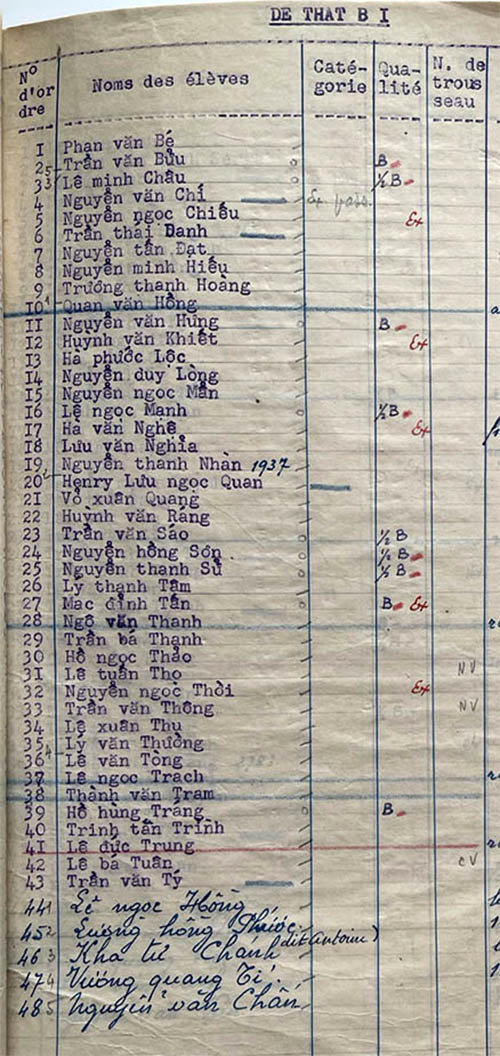 DE THAT B I
No d'or dre Noms des élèves Caté- gorie Qua- lité N. de trous seau
I Phạn văn Bé
2 5 Trần văn Bửu B
3 3 Lê minh Châu ½ B
4 Nguyễn văn Chí Ex pass.
5 Nguyễn ngọc Chiếu Ex
6 Trần thái Danh
7 Nguyễn tấn Đạt
8 Nguyễn minh Hiếu
9 Trương thanh Hoàng
I0 1 Quan văn Hồng
II Nguyễn văn Hưng B
I2 Huỳnh văn Khiết Ex
I3 Hà phước Lộc
I4 Nguyễn duy Lòng
I5 Nguyễn ngọc Mẫn
I6 Lê ngọc Mạnh ½ B
I7 Hà văn Nghê Ex
I8 Lưu văn Nghĩa
I9 Nguyễn thanh Nhàn 1937
20 Henry Lưu ngọc Quan
2I Võ xuân Quang
22 Huỳnh văn Ràng
23 Trần văn Sáo ½ B
24 Nguyễn hồng Sơn ½ B
25 Nguyễn thanh Sử ½ B
26 Lý thanh Tâm
27 Mạc đỉnh Tân B Ex
28 Ngô văn Thanh
29 Trần bá Thạnh
30 Hồ ngọc Thảo
3I Lê tuấn Thọ NV
32 Nguyễn ngọc Thời Ex
33 Trần văn Thông NV
34 Lê xuân Thu
35 Lý văn Thường
36 4 Lê văn Tòng
37 Lê ngọc Trạch
38 Thành văn Trạm
39 Hồ hùng Tráng B
40 Trinh tấn Trinh
4I Lê đức Trung
42 Lê bá Tuân cV
43 Trần văn Tý
44 1 Lê ngọc Hồng
45 2 Lương hồng Phước
46 3 Kha tử Chánh (dit Antoine)
47 4 Vương quang Tí
48 5 Nguyễn văn Chẩn